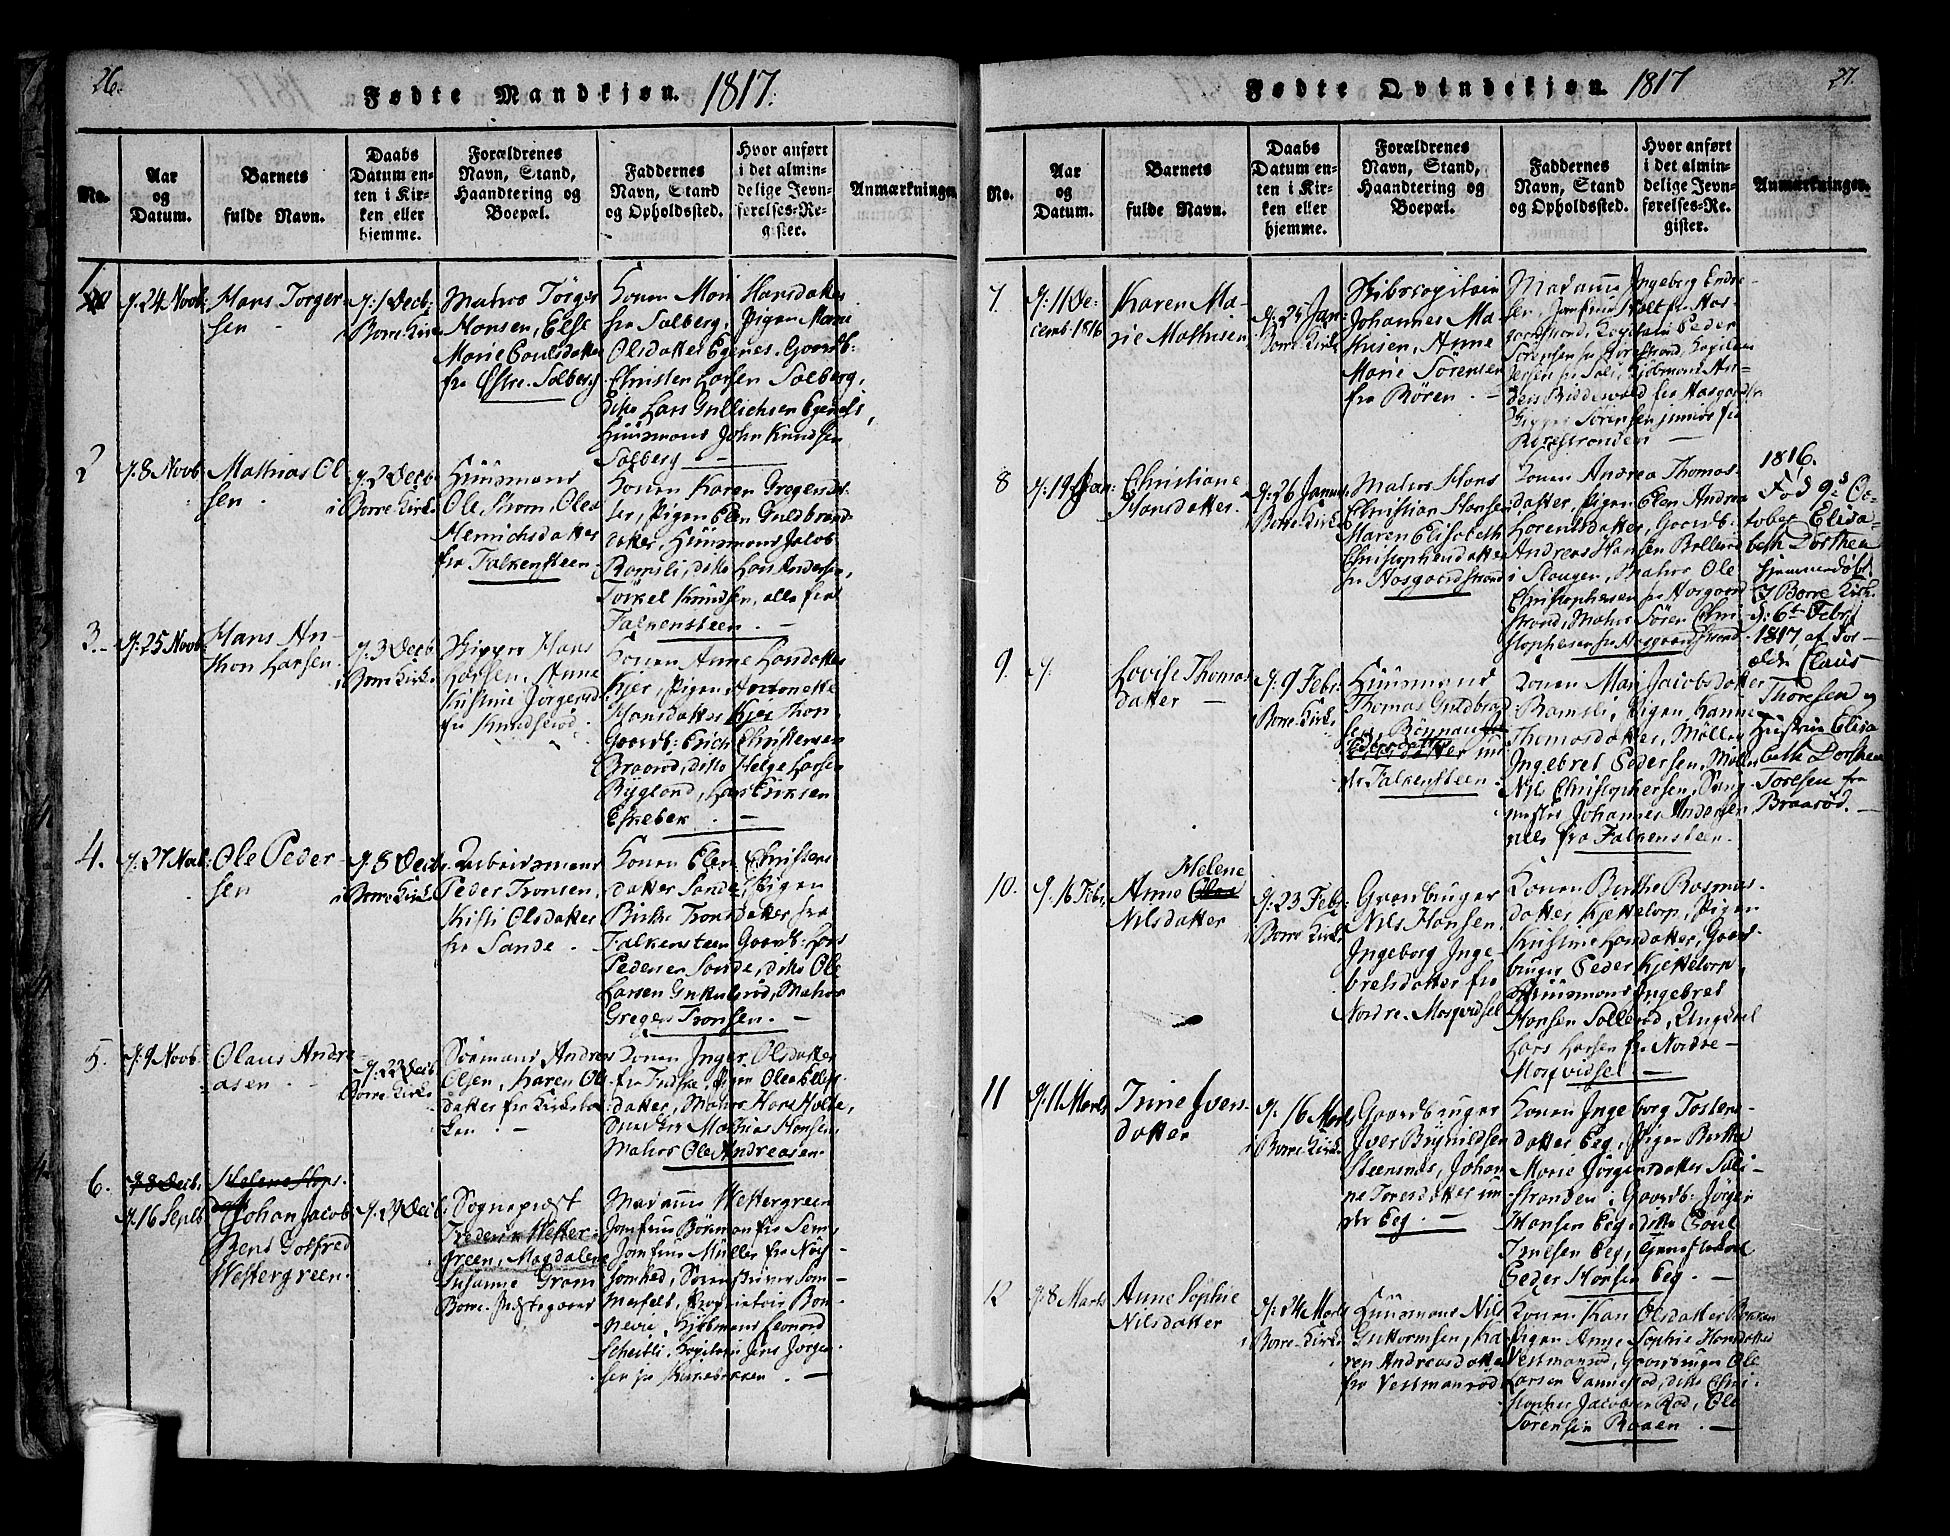 26.
Fødte Mandkjøn. 1817.
No.
Aar
og
Datum.
Barnets
fulde Navn.
Daabs
Datum en-
ten i Kir-
ken eller
hjemme.
Forældrenes
Navn, Stand,
Haandtering og
Boepæl.
Faddernes
Navn, Stand
og Opholdssted.
Hvor anført
i det almin-
delige Jevn-
førelses-Re-
gister.
Anmærkninger.
1
24 Novb:
Hans Torger
sen
1 Decb:
Borre Kirke
Matros Törger
Hansen, Else
Marie Poulsdatter
fra Östre Solberg
Konen Mari Hansdatter
fra Solberg, Pigen Marie
Olsdatter Egenes, Gaardb:
Christen Larsen Solberg,
ditto Lars Gullichsen Egenes,
Huusmand John Knudsen
Solberg
2
8 Novb
Mathias Ol
sen
2 Decb
i Borre Kirke
Huusmand
Ole Strøm, Olea
Henrichsdatter
fra Falkensteen
Konen Karen Gregers
Pigen Elen Guldbrands
datter, Huusmand Jacob
Ramsli, ditto Lars Andersen,
Törkel Knudsen, alle fra
Falkensteen
3.
25 Novb
Hans An-
thon Larsen
3 Decb
i Borre Kirke
Skipper Hans
Larsen, Anne
Kirstine Jörgensd
fra Knudsröd
Konen Anne Larsdatter
Kjer, Pigen Antonette
Hansdatter Kjer
Gaardb: Erich Christensen
Braaröd, ditto Helge Larsen
Rygland, Lars Eriksen
Eskebek
4.
27 Novb:
Ole Peder
sen
8 Decb.
i Borre Kirke
Arbeidsmand
Peder Tronsen,
Kisti Olsdatter
fra Sande
Konen Elen Christens
datter Sande, Pigen
Birthe Tronsdatter fra
Falkensteen Gaardb: Lars
Pedersen Sande, ditto Ole
Larsen, Matros
Gregers Tronsen.
5.
9 Novb:
Olaus Andre
asen
22 Decb
i Borre Kirke
Sömand Andreas
Olsen, Karen Ols
datter fra Kirkebak
ken
Konen Inger Olsdatter
Pigen Olea Ellefs
datter, Matros Hans Holte,
Mathias Hansen,
Matros Ole Andreasen.
6.
8 Decb.
Helene Hans
datter
16 Septb
Johan Jacob
Bent Gotfred
Westergreen
29 Decb:
Sogneprest
Frederik Wester-
green, Magdalene
Susanne Gram
Borre Præstegaard
Madame Westergreen
Jomfrue Börman fra Sem
Jomfrue Müller fra
Sorenskriver Som-
merfelt, Proprietair Bon-
nevie, Kjöbmand Leonard
Scheitli, Kapitain Jens Jörgen-
sen
27.
Fødte Qvindekjøn. 1817
No.
Aar
og
Datum.
Barnets
fulde Navn.
Daabs
Datum en-
ten i Kir-
ken eller
hjemme.
Forældrenes
Navn, Stand,
Haandtering og
Boepæl.
Faddernes
Navn, Stand
og Opholdssted.
Hvor anført
i det almin-
delige Jevn-
førelses-Re-
gister.
Anmærkninger.
7.
11 De-
cemb. 1816
Karen Ma-
rie Mathisen
25 Jan:
Borre Kirke
Skibscapitain
Johannes Ma-
thisen, Anne
Marie Sörensen
fra Rören
Madame Ingeborg Andre-
sen, Jomfrue Holt fra Aas-
gaardstrand, Kapitain Peder
Sörensen fra Horrestrand, Kapitain
Kjöbmand An-
ders Riddervold fra Aasgaardstr
Skipper Sörensen junior fra
8
19 Jan:
Christiane
Hansdatter
26 Januar
i Borre Kirke
Matros Hans
Christian Hansen
Maren Elisabeth
Christophersdatter
fra Aasgaardstrand
Konen Andrea Thomas-
datter, Pigen Elen Andrea
Lorentsdatter, Gaardb:
Andreas Hansen Rolland
i Slaugen, Matros Ole
Christophersen fra Aasgaard
strand, Matros Sören Chri-
stophersen fra Aasgaardstrand
1816.
Föd 9d Oc-
tober Elisa-
beth Dorthea
hjemmedöbt
i Borre Kirk.
d: 6te Febr
1817, af For-
ældr. Claus
Thoresen og
Hustrue Elisa
beth Dorthea
Toresen fra
Braaröd.
9.
Lovise Thomas
datter
9 Febr:
Borre Kirke
Huusmand
Thomas Guldbrand
sen
Pedersdatter un-
der Falkensteen
Konen Mari Jacobsdatter
Ramsli, Pigen Hanne
Thomasdatter, Möller
Ingebret Pedersen, Möller
Nils Christophersen, Smug
Johannes Andersen
alle fra Falkensteen.
10.
16 Febr,
Helene
Anne Olea
Nilsdatter
23 Febr
i Borre Kirke
Gaardbruger
Nils Hansen,
Ingeborg Inge-
bretsdatter fra
Nordre Mosvidsel
Konen Berthe Rasmus-
datter Kjettelorp, Pigen
Kirstine Larsdatter, Gaard-
bruger Peder Kjettelorp
Huusmand Ingebret
Hansen Solleröd, Ungkarl
Lars Larsen fra Nordre
Mosvidsel
11
11 Marts
Trine Ivers-
datter
16 Marts
i Borre Kirke
Gaardbruger
Iver Brynildsen
Steensnæs, Johan
ne Toresdatter un
der Eeg.
Konen Ingeborg Tostens-
datter Eeg, Pigen Berthe
Marie Jörgensdatter Sole-
stranden, Gaardb: Jörgen
Hansen Eeg, ditto Poul
Iversen Eeg, Gaardskarl
Peder Hansen Eeg.
12
8 Marts
Anne Sophie
Nilsdatter
24 Marts
i Borre Kirke
Huusmand Nils
Guttormsen, Ka-
ren Andreasdatter
fra Vestmanröd
Konen Kari Olsdatter
Pigen Anne Sophie Hansdatter
Vestmanröd, Gaardbruger Ole
Larsen Sanneröd, ditto Chri-
stopher Jacobsen Röd, Ole
Sörensen Roaen